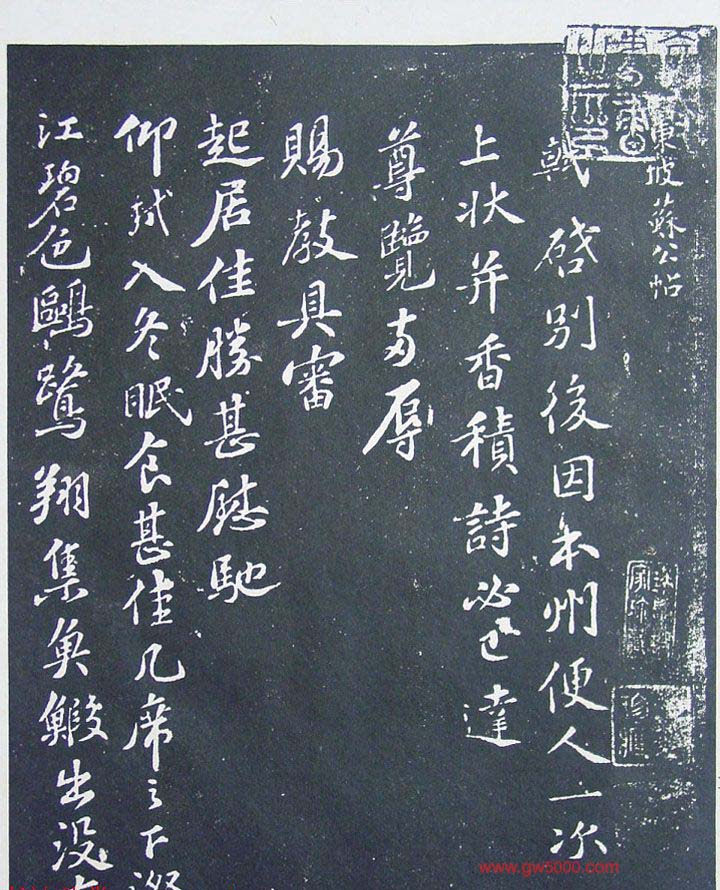 東坡蘇公帖
軾啓別後因本州便人一次
上狀并香積詩必已達
尊覽專辱
賜教具審
起居佳勝甚慰馳
仰軾入冬眠食甚佳几席之下澄
江碧色鷗鷺翔集魚鰕出没有
www.gw5000.com